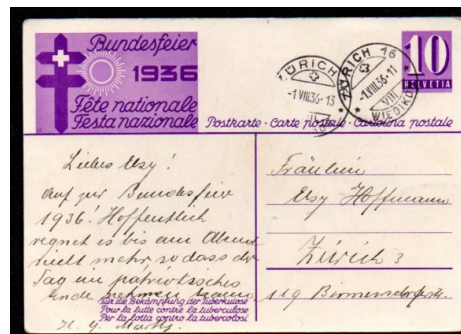 Bundesfeier
1936
Fête nationale
Festa nazionale
Postkarte · Carte postale · Cartolina postale
ZÜRICH
-1.VIII.36-13
ZÜRICH 16
-1.VIII.36-11
VIII
WIEDIKON
10
HELVETIA
Liebes Elsy!
Auf zur Bundesfeier
1936! Hoffentlich
regnet es bis am Abend
nicht mehr so dass der
Tag ein patriotisches
Ende nehmen kann.
Für die Bekämpfung der Tuberkulose
Pour la lutte contre la tuberculose
Per la lotta contro la tubercolosi
Fräulein
Elsy Hoffmann
Zürich 3
119 Birmensdorferstr.